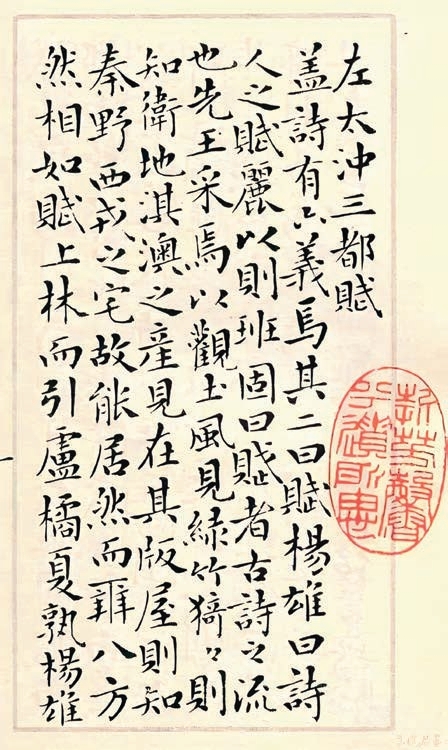 左太沖三都賦
蓋詩有六義焉其二曰賦楊雄曰詩
人之賦麗以則班固曰賦者古詩之流
也先王采焉以觀土風見綠竹猗々則
知衛地淇澳之產見在其版屋則知
秦野西戎之宅故能居然而辨八方
然相如賦上林而引盧橘夏孰楊雄